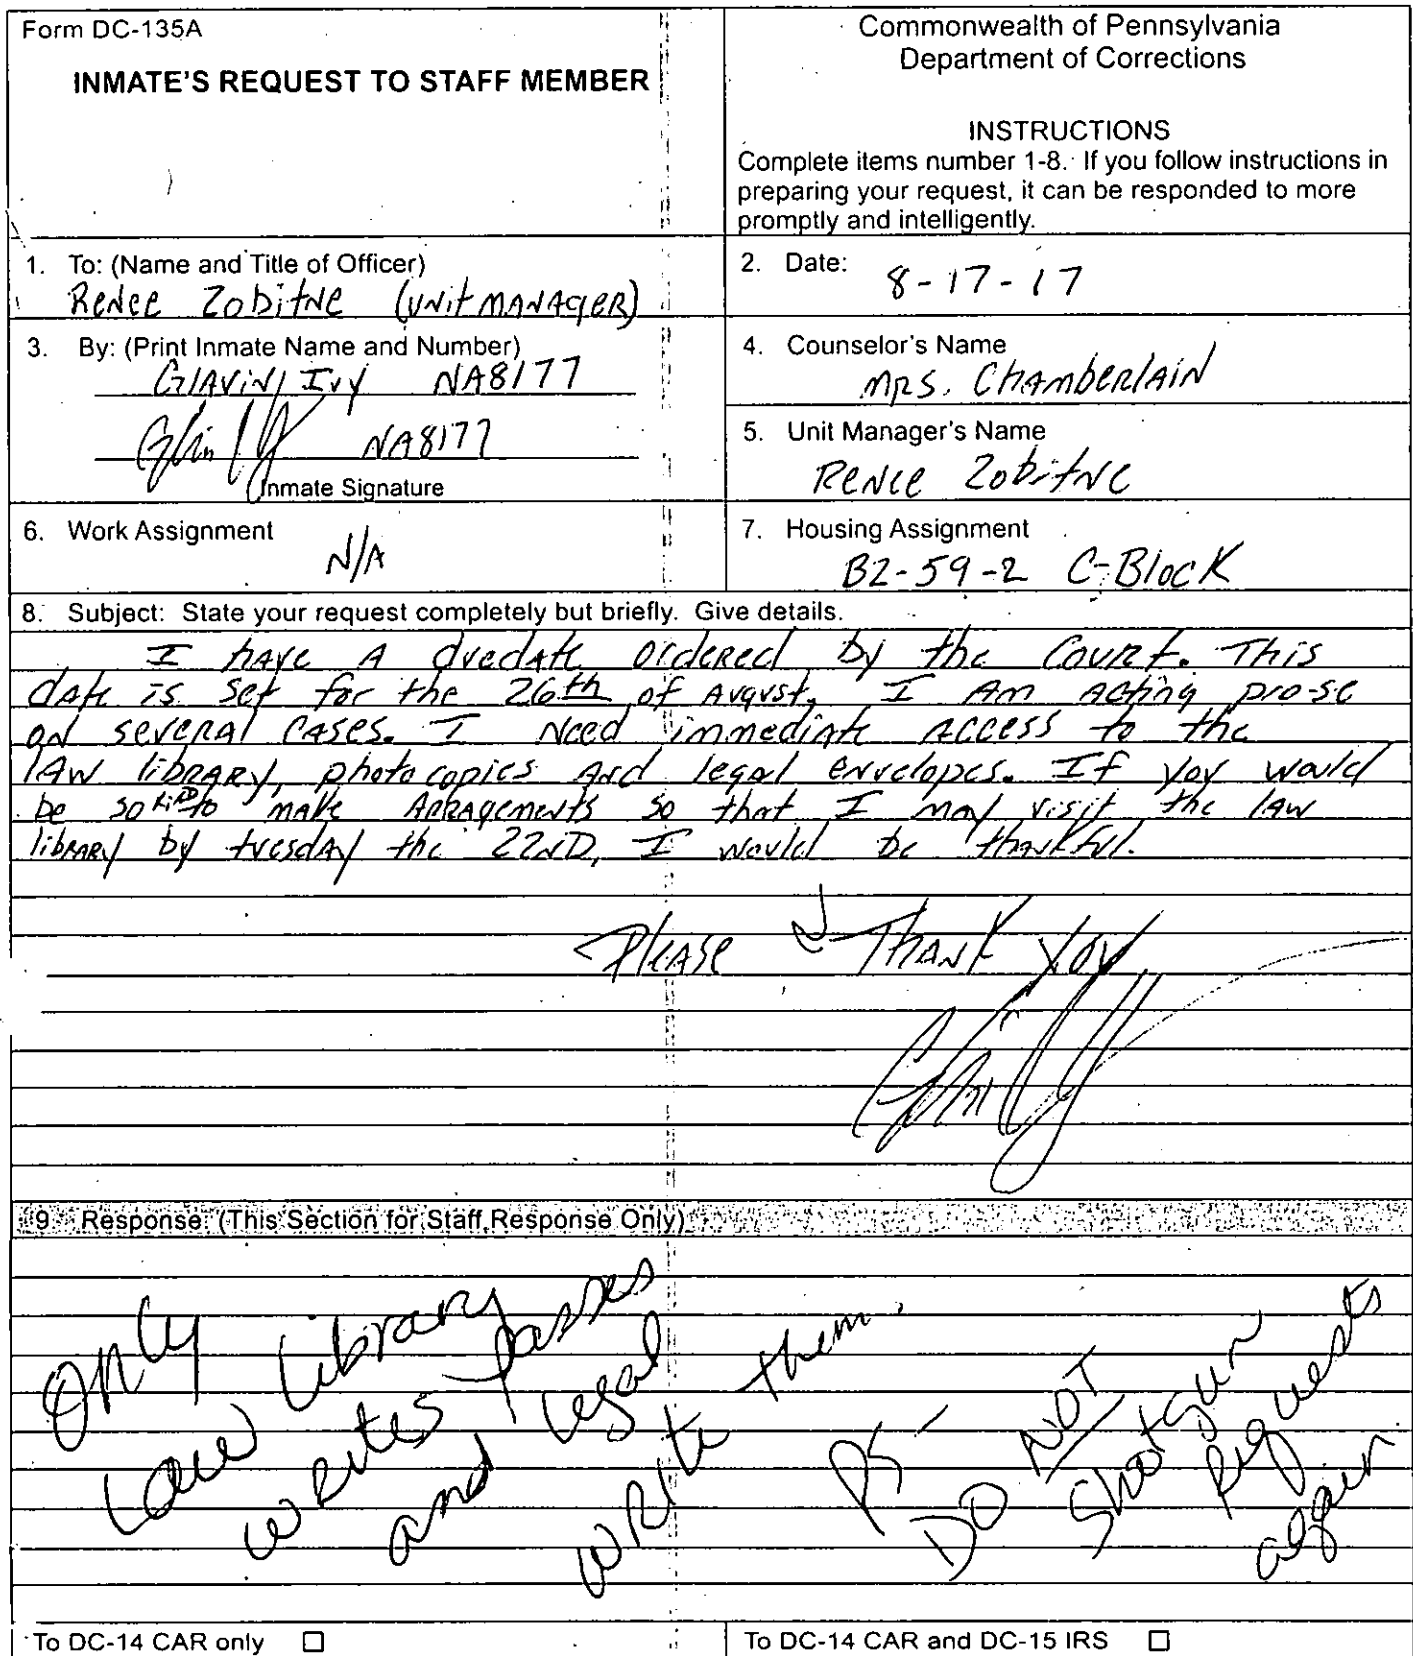 Form DC-135A
INMATE'S REQUEST TO STAFF MEMBER
Commonwealth of Pennsylvania
Department of Corrections
INSTRUCTIONS
Complete items number 1-8. If you follow instructions in
preparing your request, it can be responded to more
promptly and intelligently.
1. To: (Name and Title of Officer)
Renee Zobitne (Unit Manager)
2. Date:
8-17-17
3. By: (Print Inmate Name and Number)
Glavin, Ivy NA8177
NA8177
Inmate Signature
4. Counselor's Name
Mrs. Chamberlain
5. Unit Manager's Name
Renee Zobitne
6. Work Assignment
N/A
7. Housing Assignment
B2-59-2 C-Block
8. Subject: State your request completely but briefly. Give details.
I have a duedate ordered by the Court. This
date is set for the 26th of August. I am acting pro-se
on several cases. I need immediate access to the
law library, photocopies and legal envelopes. If you would
be so kind to make arragements so that I may visit the law
library by tuesday the 22nd, I would be thankful.
Please & Thank You
9. Response: (This Section for Staff Response Only)
Only
Law Library
writes passes
and legal
write them.
PS -
DO NOT
Shotgun
Requests
again
To DC-14 CAR only ☐
To DC-14 CAR and DC-15 IRS ☐